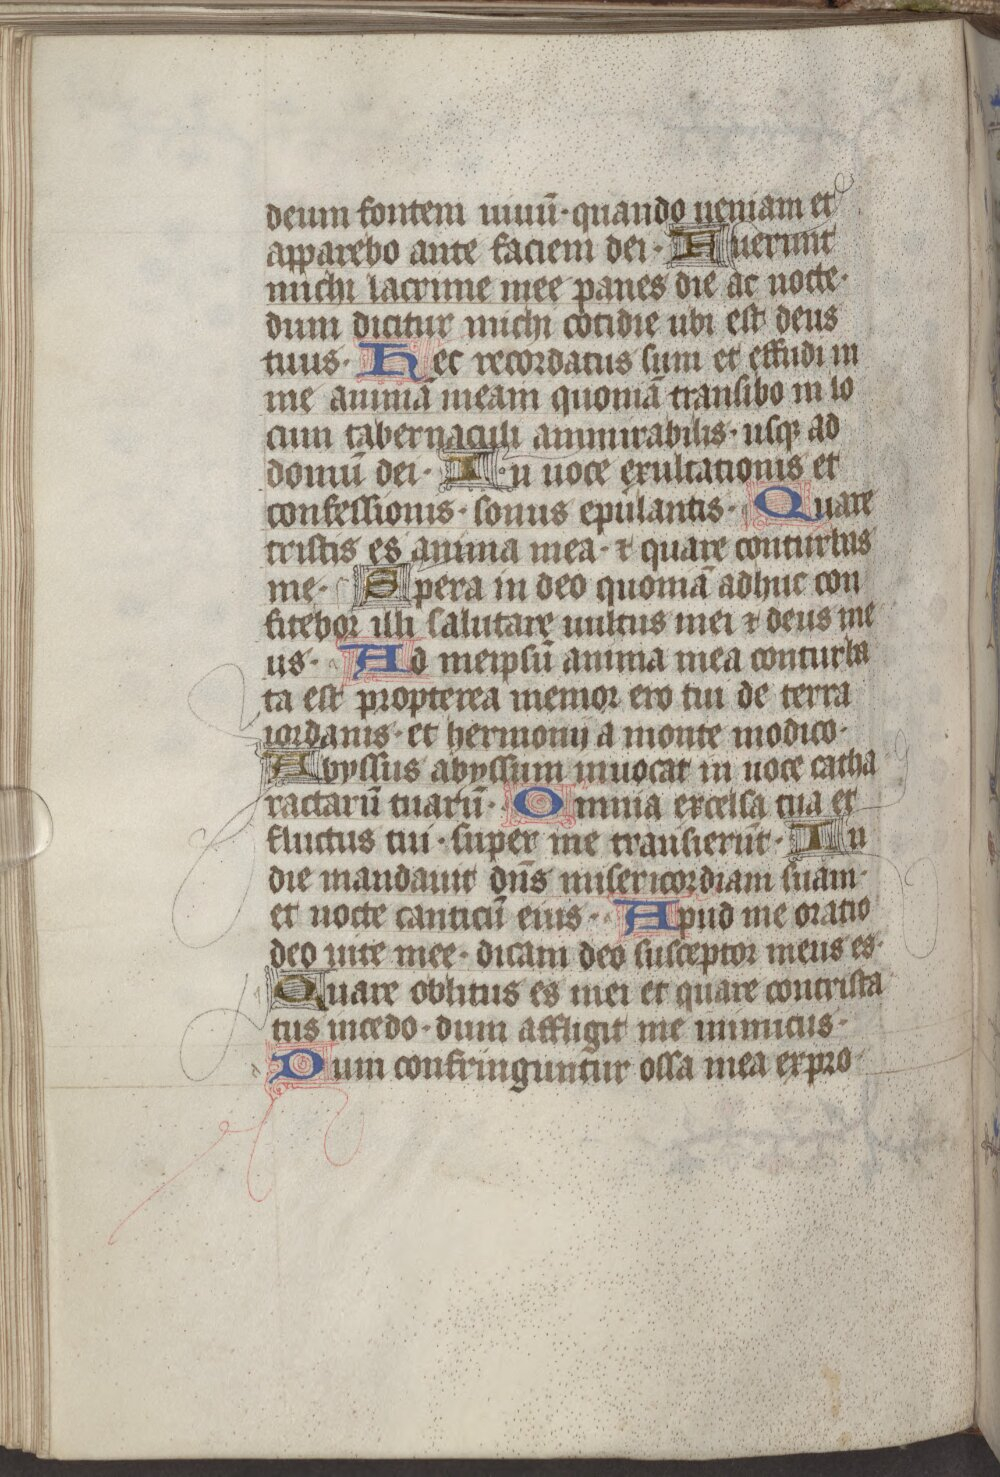 deum fontem uiuū·quando ueniam et
apparebo ante faciem dei· Fuerunt
michi lacrime mee panes die ac nocte·
dum dicitur michi cotidie ubi est deus
tuus· Hec recordatus sum et effudi in
me animā meam quoniā transibo in lo
cum tabernaculi ammirabilis·usqꝫ ad
domū dei· In uoce exultationis et
confessionis·sonus epulantis· Quare
tristis es anima mea·⁊ quare conturbas
me· Spera in deo quoniā adhuc con
fitebor illi salutare uultus mei ⁊ deus me
us· Ad meipsū anima mea conturba
ta est propterea memor ero tui de terra
iordanis·et hermonij a monte modico·
Abyssus abyssum inuocat in uoce catha
ractarū tuarū· Omnia excelsa tua et
fluctus tui·super me transierūt· In
die mandauit dn̄s misericordiam suam·
et nocte canticū eius· Apud me oratio
deo uite mee·dicam deo susceptor meus es·
Quare oblitus es mei et quare contrista
tus incedo·dum affligit me inimicus·
Dum confringuntur ossa mea expro